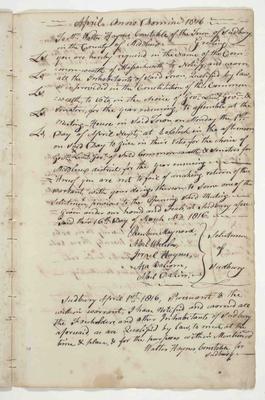 April Anno Domini 1816
To Mr. Walter Haynes Constable of the Town of Sudbury
in the County of Middlesex Greeting
you are hereby required in the Name of the Com
monwealth of Massachusetts to Notify and warn
all the Inhabitants of said Town qualified by law,
as is provided in the Constitution of this Common
wealth to vote in the choice of Govr. Lieut. Govr. &
Senators for the year ensuing to assemble at the
Meeting House in said Town on Monday the 1st
Day of April Next, at o'clock in the afternoon
on said Day to give in their votes for the choice of
Govr. Lieut. Govr. of said Commonwealth & Senators for
Middlesex district for the year ensuing
Hereof you are not to fail of making return of this
warrant with your doings thereon to some one of the
Selectmen previous to the opening said Meeting
Given under our hand and Seal at Sudbury
this 16th Day of March AD. 1816.
Reuben Maynard,
Abel Wheeler,
Israel Haynes,
Selectmen
of
Sudbury
Sudbury April 1st 1816, Pursuant to the
within warrant, I have Notified and warned all
the Freeholders and other Inhabitants of Sudbury
aforesaid as are Qualified by law, to meet at the
time, & place, & for the purposes within Mentioned
Walter Haynes Constable for
Sudbury